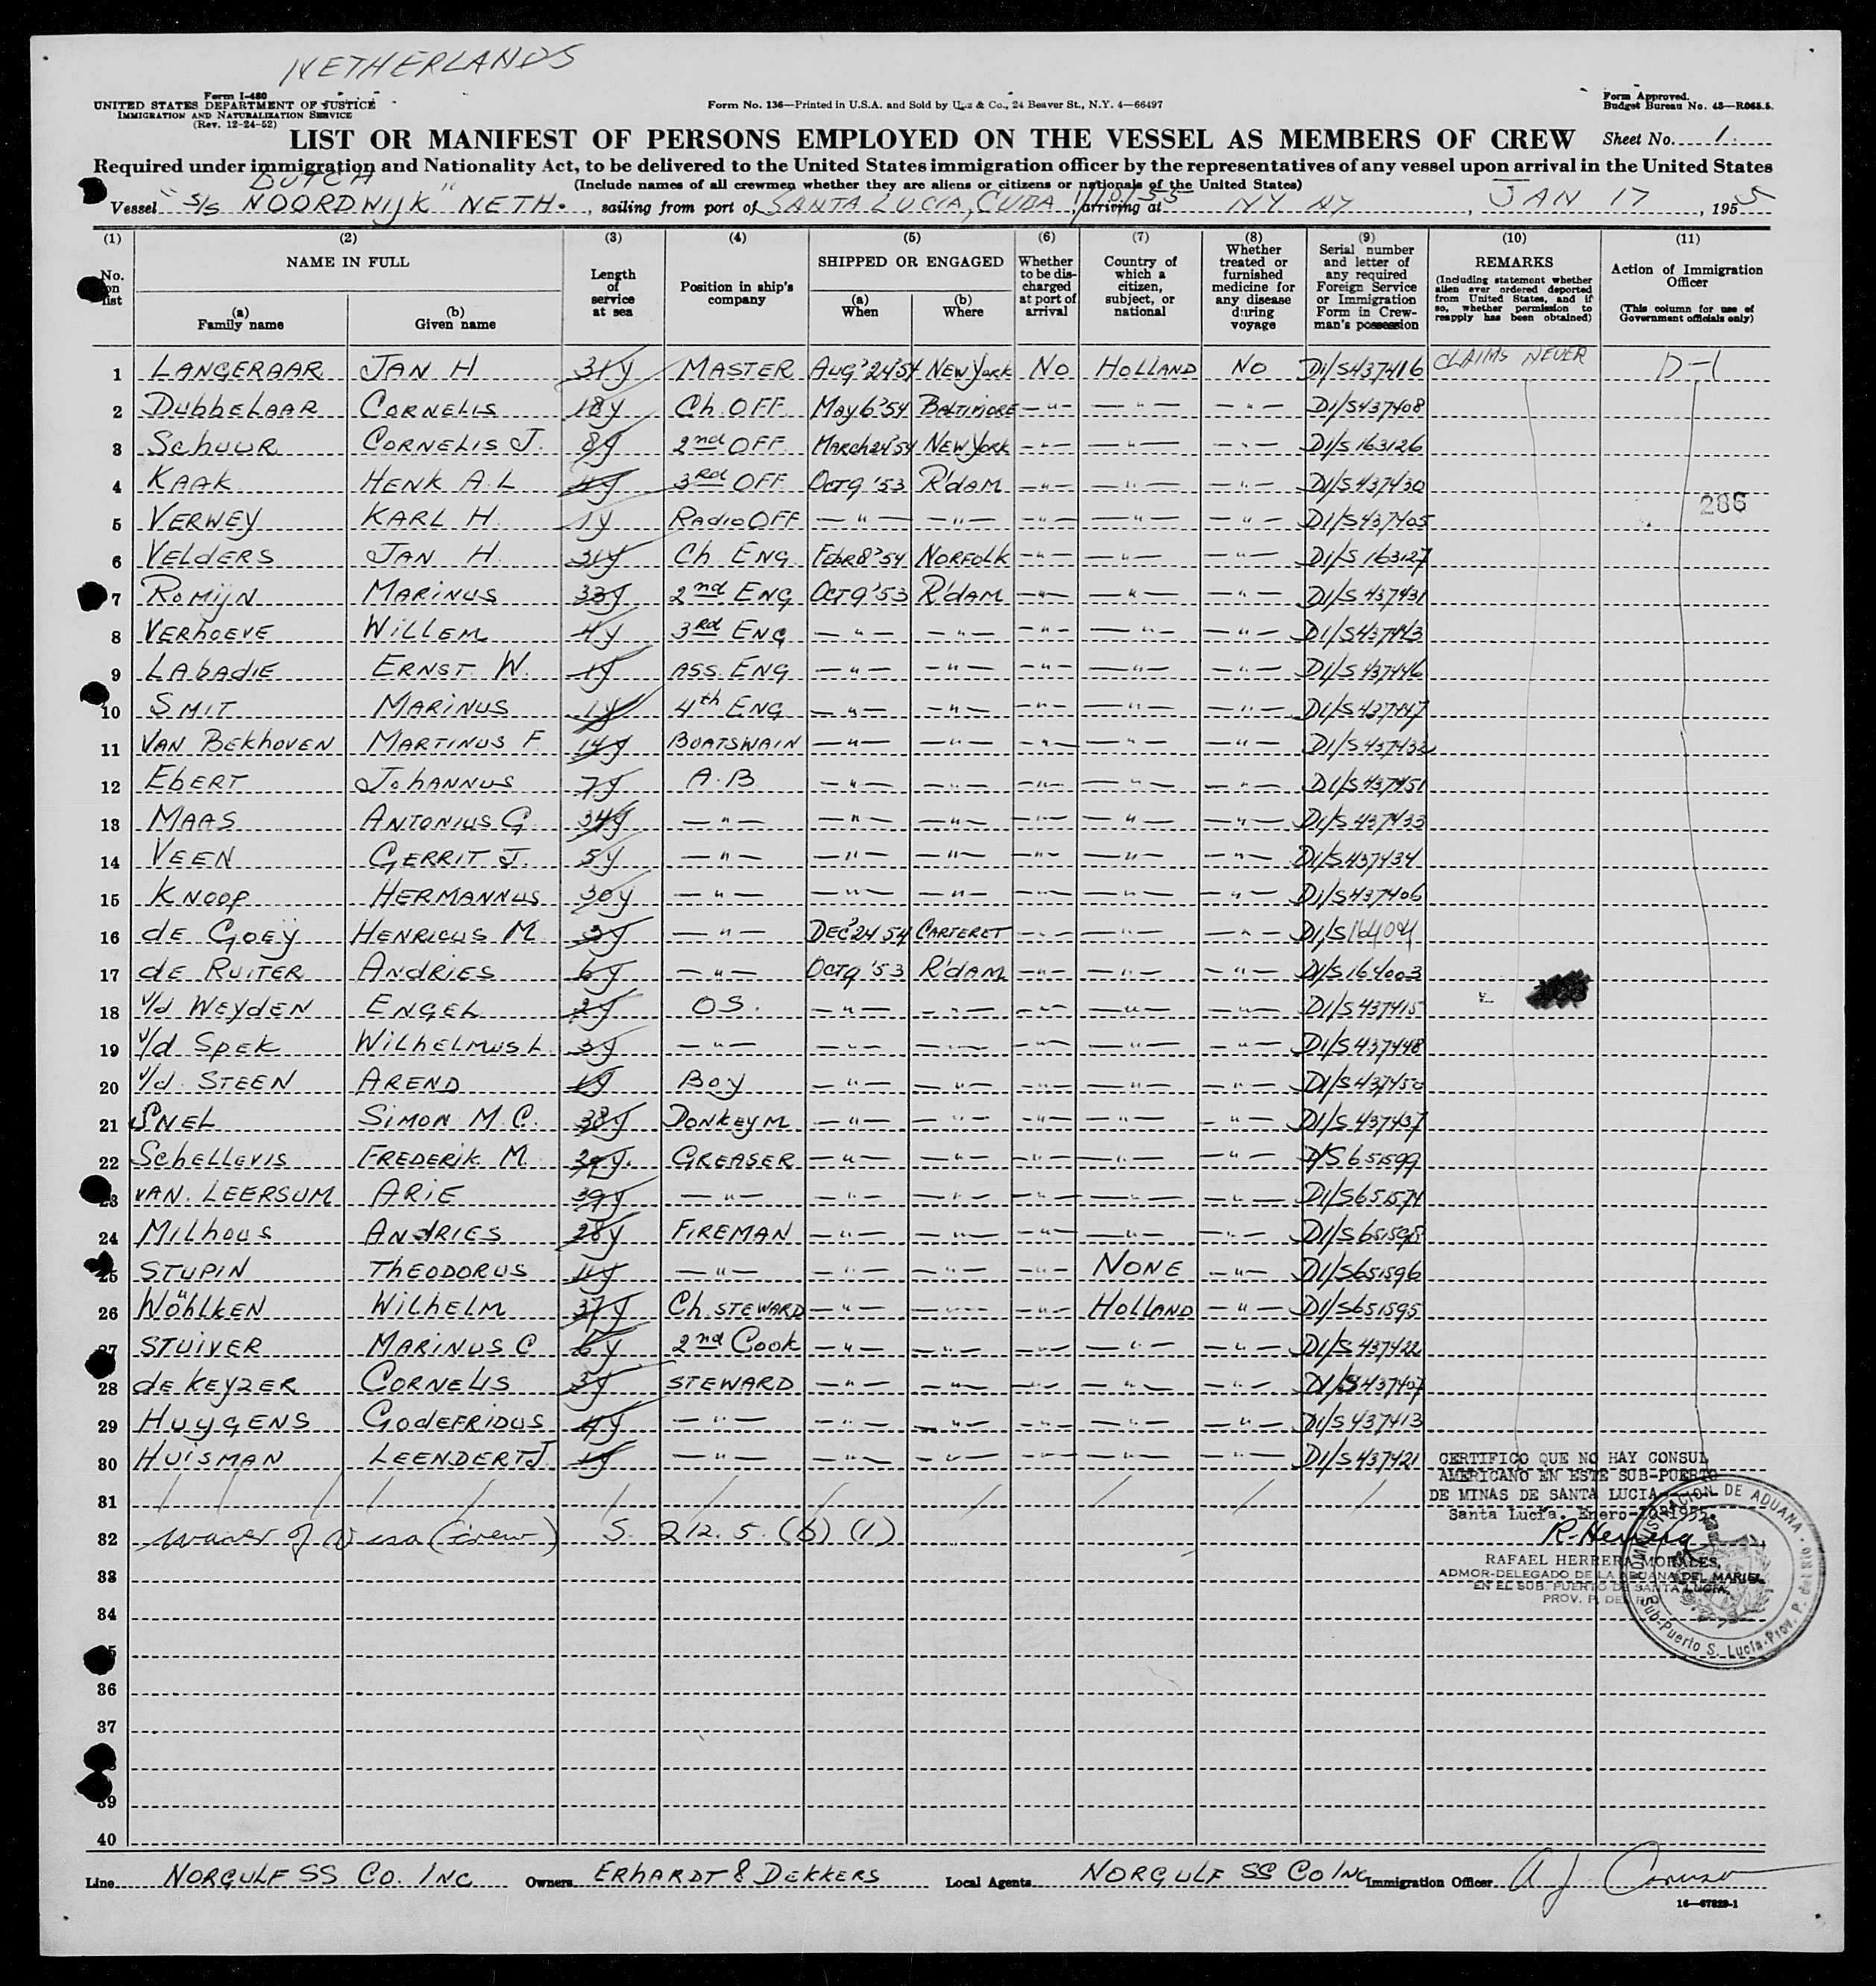 NETHERLANDS
Form I-480
UNITED STATES DEPARTMENT OF JUSTICE
IMMIGRATION AND NATURALIZATION SERVICE
(Rev. 12-24-52)
Form No. 136—Printed in U.S.A. and Sold by & Co., 24 Beaver St., N.Y. 4—66497
Form Approved.
Budget Bureau No. 43—R065.5.
LIST OR MANIFEST OF PERSONS EMPLOYED ON THE VESSEL AS MEMBERS OF CREW
Sheet No. 1.
Required under immigration and Nationality Act, to be delivered to the United States immigration officer by the representatives of any vessel upon arrival in the United States
(Include names of all crewmen whether they are aliens or citizens or nationals of the United States)
DUTCH
Vessel "S/S NOORDWIJK" NETH. , sailing from port of SANTA LUCIA, CUBA, 1/10/55 arriving at NY NY , JAN 17 , 1955
(1) (2) (3) (4) (5) (6) (7) (8) (9) (10) (11)
No. on list
NAME IN FULL
(a) Family name
(b) Given name
Length of service at sea
Position in ship's company
SHIPPED OR ENGAGED
(a) When
(b) Where
Whether to be discharged at port of arrival
Country of which a citizen, subject, or national
Whether treated or furnished medicine for any disease during voyage
Serial number and letter of any required Foreign Service or Immigration Form in Crewman's possession
REMARKS
(Including statement whether alien ever ordered deported from United States, and if so, whether permission to reapply has been obtained)
Action of Immigration Officer
(This column for use of Government officials only)
1 LANGERAAR JAN H 31y MASTER AUG'24'54 NEW YORK NO HOLLAND NO DI/S437416 CLAIMS NEVER D-1
2 DUBBELAAR CORNELIS 18y Ch. OFF. MAY 6'54 BALTIMORE -"- -"- -"- DI/S437408
3 SCHUUR CORNELIS J. 8y 2nd OFF. MARCH 24'54 NEW YORK -"- -"- -"- DI/S163126
4 KAAK HENK A.L 4y 3Rd OFF OCT 9'53 R'DAM -"- -"- -"- DI/S437430
286
5 VERWEY KARL H. 1y RADIO OFF -"- -"- -"- -"- -"- DI/S437405
6 VELDERS JAN H. 31y Ch. ENG. FEBR 8'54 NORFOLK -"- -"- -"- DI/S163127
7 ROMIJN MARINUS 33y 2nd ENG OCT 9'53 R'DAM -"- -"- -"- DI/S437431
8 VERHOEVE WILLEM 4y 3Rd ENG -"- -"- -"- -"- -"- DI/S437443
9 LABADIE ERNST W. 1y ASS. ENG -"- -"- -"- -"- -"- DI/S437446
10 SMIT MARINUS 1y 4th ENG -"- -"- -"- -"- -"- DI/S437447
11 VAN BEKHOVEN MARTINUS F. 14y BOATSWAIN -"- -"- -"- -"- -"- DI/S437432
12 EBERT JOHANNUS 7y A.B -"- -"- -"- -"- -"- DI/S437451
13 MAAS ANTONIUS G. 34y -"- -"- -"- -"- -"- -"- DI/S437433
14 VEEN GERRIT J. 5y -"- -"- -"- -"- -"- -"- DI/S437434
15 KNOOP HERMANNUS 30y -"- -"- -"- -"- -"- -"- DI/S437406
16 de GOEY HENRICUS M. 3y -"- DEC'24 54 CARTERET -"- -"- -"-
17 de RUITER ANDRIES 6y -"- OCT 9'53 R'DAM -"- -"- -"- DI/S164003
18 v/d WEYDEN ENGEL 2y OS. -"- -"- -"- -"- -"- DI/S437415
19 v/d SPEK WILHELMUS L. 3y -"- -"- -"- -"- -"- -"- DI/S437448
20 v/d. STEEN AREND 1y BOY -"- -"- -"- -"- -"- DI/S437450
21 SNEL SIMON M.C. 38y DONKEYM. -"- -"- -"- -"- -"- DI/S437437
22 SCHELLEVIS FREDERIK M. 29y. GREASER -"- -"- -"- -"- -"- D/S651599
23 VAN. LEERSUM ARIE 39y -"- -"- -"- -"- -"- -"- DI/S651574
24 MILHOUS ANDRIES 28y FIREMAN -"- -"- -"- -"- -"- DI/S651598
25 STUPIN THEODORUS 11y -"- -"- -"- -"- NONE -"- DI/S651596
26 WÖHLKEN WILHELM 37y Ch. STEWARD -"- -"- -"- HOLLAND -"- DI/S651595
27 STUIVER MARINUS C 6y 2nd COOK -"- -"- -"- -"- -"- DI/S437422
28 de KEYZER CORNELIS 3y STEWARD -"- -"- -"- -"- -"- DI/S437407
29 HUYGENS GODEFRIDUS 4y -"- -"- -"- -"- -"- -"- DI/S437413
30 HUISMAN LEENDERT J. 1y -"- -"- -"- -"- -"- -"- DI/S437421
CERTIFICO QUE NO HAY CONSUL
AMERICANO EN ESTE SUB-PUERTO
31
DE MINAS DE SANTA LUCIA
Santa Lucia. Enero-10-1955.
32 waiver of Visa (crew) S. 212. 5. (b) (1)
R. Herrera
RAFAEL HERRERA MORALES,
33
ADMOR-DELEGADO DE LA ADUANA DEL MARIEL
EN EL SUB. PUERTO DE SANTA LUCIA,
PROV. P. DEL
ADMINISTRACION DE ADUANA
Sub-Puerto S. Lucia-Prov. P. del Rio
34
35
36
37
38
39
40
Line NORGULF SS CO. INC Owners ERHARDT & DEKKERS Local Agents NORGULF SS CO INC Immigration Officer A J Caruso
16—67829-1